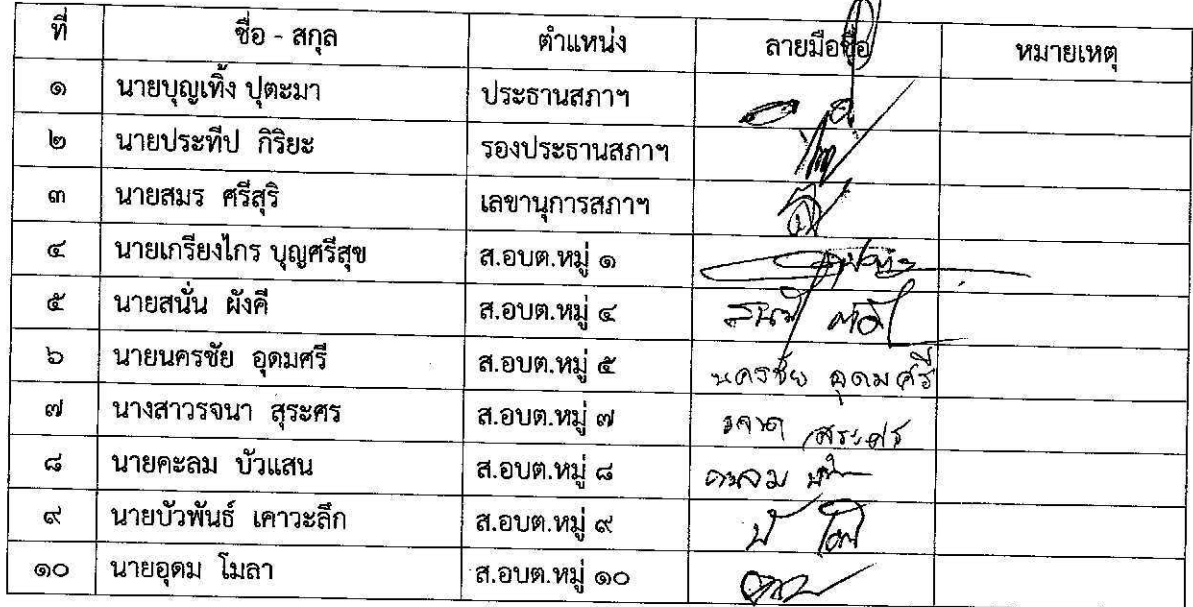 ที่ ชื่อ - สกุล ตำแหน่ง ลายมือชื่อ หมายเหตุ
๑ นายบุญเทิ้ง ปุตะมา ประธานสภาฯ
๒ นายประทีป กิริยะ รองประธานสภาฯ
๓ นายสมร ศรีสุริ เลขานุการสภาฯ
๔ นายเกรียงไกร บุญศรีสุข ส.อบต.หมู่ ๑
๕ นายสนั่น ผังคี ส.อบต.หมู่ ๔
๖ นายนครชัย อุดมศรี ส.อบต.หมู่ ๕ นครชัย อุดมศรี
๗ นางสาวรจนา สุระศร ส.อบต.หมู่ ๗
๘ นายคะลม บัวแสน ส.อบต.หมู่ ๘ คะลม
๙ นายบัวพันธ์ เคาวะลึก ส.อบต.หมู่ ๙
๑๐ นายอุดม โมลา ส.อบต.หมู่ ๑๐